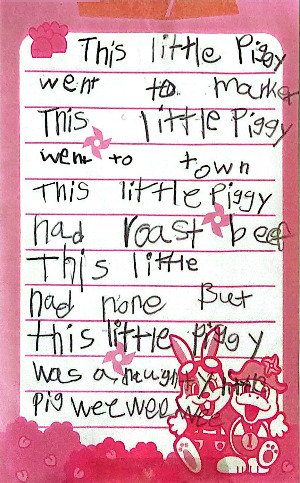 This little Piggy
went to market
This little Piggy
went to town
This little Piggy
had roast beef
This little
had none But
this little piggy
was a naughty
pig wee wee wee